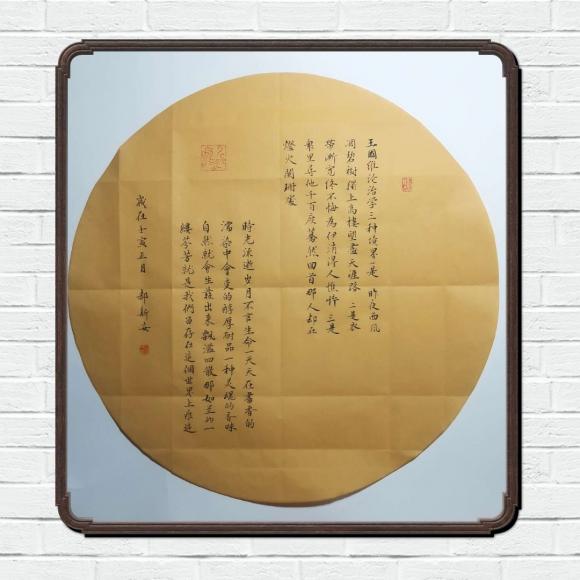 王國維论治学三种境界一是 昨夜西風
凋碧樹獨上高樓望盡天涯路 二是衣
带漸寬终不悔為伊消得人憔悴 三是
衆里尋他千百度驀然回首那人却在
燈火闌珊處
時光流逝岁月不言生命一天天在書香的
濡染中會变的醇厚耐品一种美的香味
自然就會生發出来飄溢四散那如兰的一
縷芬芳就是我們留存在這個世界上
歲在壬寅正月 郝新安